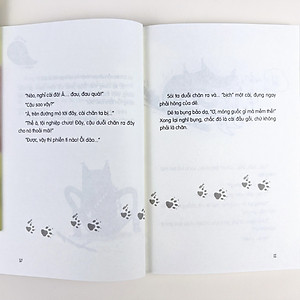 "Nào, nghỉ cái đã! Á... đau, đau quá!"
"Cậu sao vậy?"
"À, trên đường mò tới đây, cái chân ta bị..."
"Thế à, tội nghiệp chưa! Đây, cậu duỗi chân ra đây
cho nó thoải mái!"
"Được, vậy thì phiền tí nào! Ối dào..."
Sói ta duỗi chân ra và... "bịch" một cái, đụng ngay
phải hông của dê.
Dê ta bụng bảo dạ, "Ơ, móng guốc gì mà mềm thế!"
Xong lại nghĩ bụng, chắc đó là cái đầu gối, chứ không
phải là chân.